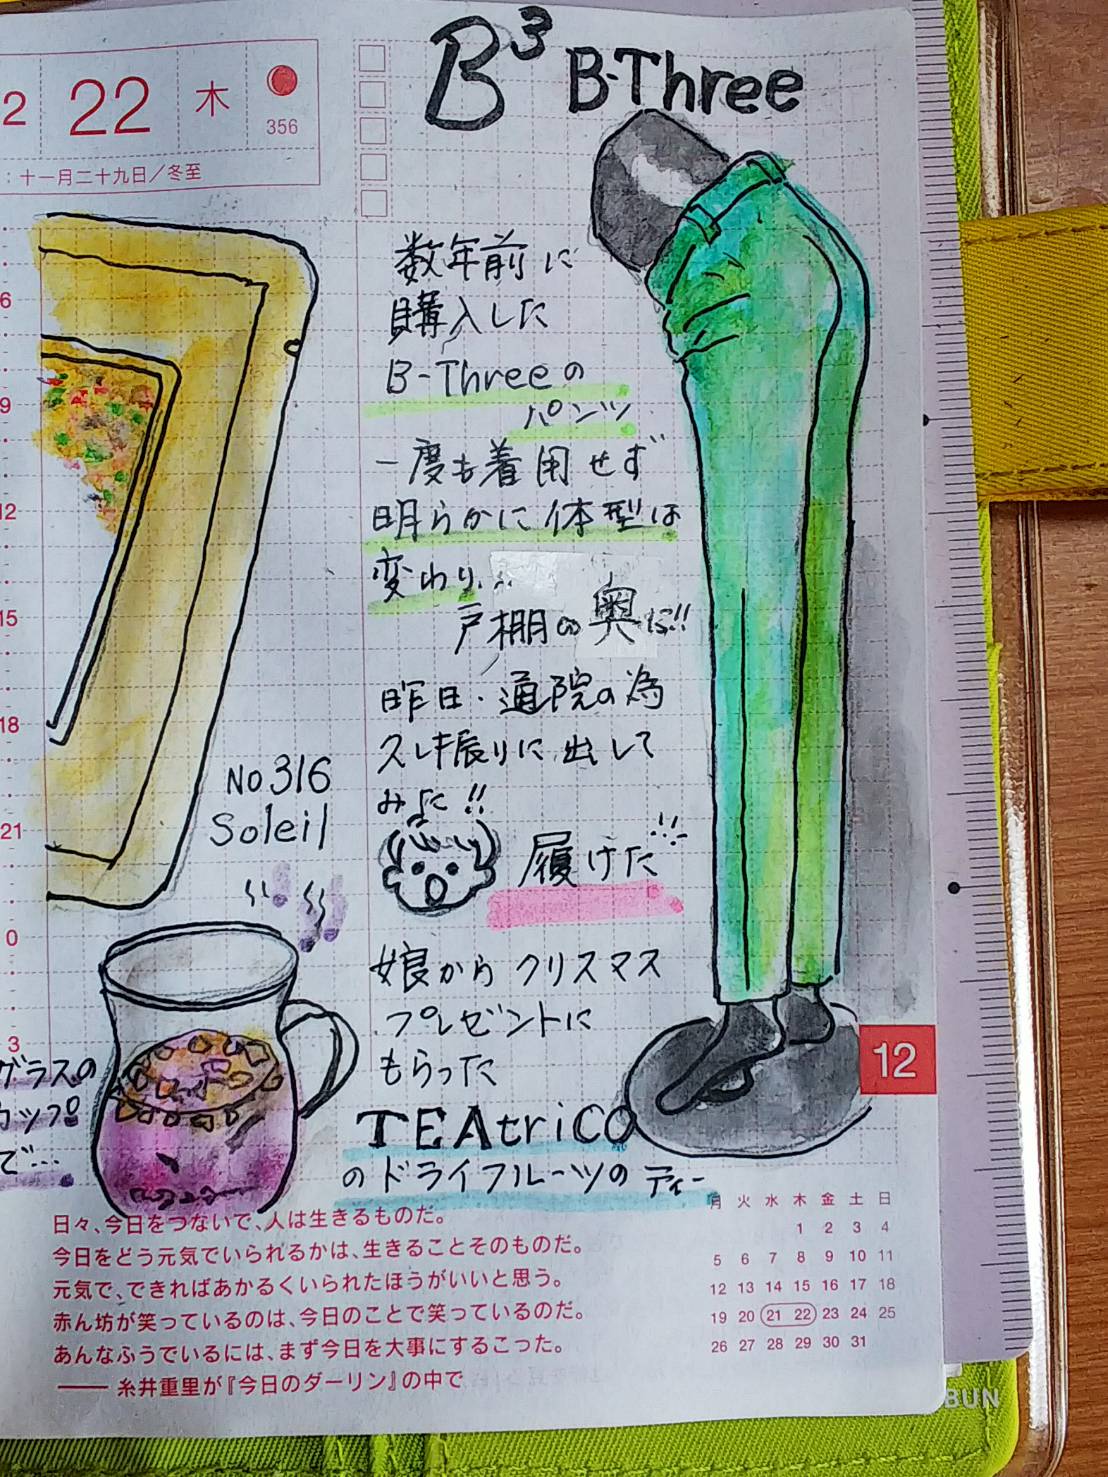 2 22 木
356
：十一月二十九日／冬至
B³ B-Three
数年前に
購入した
B-Threeの
パンツ
一度も着用せず
明らかに体型は
変わり…
戸棚の奥に!!
昨日・通院の為
久し振りに出して
みよに!!
履けた!!
娘からクリスマス
プレゼントに
もらった
TEAtriCO
のドライフルーツのティー
No316
Soleil
グラスの
カップ
で…
6
9
12
15
18
21
0
3
12
日々、今日をつないで、人は生きるものだ。
今日をどう元気でいられるかは、生きることそのものだ。
元気で、できればあかるくいられたほうがいいと思う。
赤ん坊が笑っているのは、今日のことで笑っているのだ。
あんなふうでいるには、まず今日を大事にするこった。
―― 糸井重里が『今日のダーリン』の中で
月 火 水 木 金 土 日
1 2 3 4
5 6 7 8 9 10 11
12 13 14 15 16 17 18
19 20 21 22 23 24 25
26 27 28 29 30 31
BUN